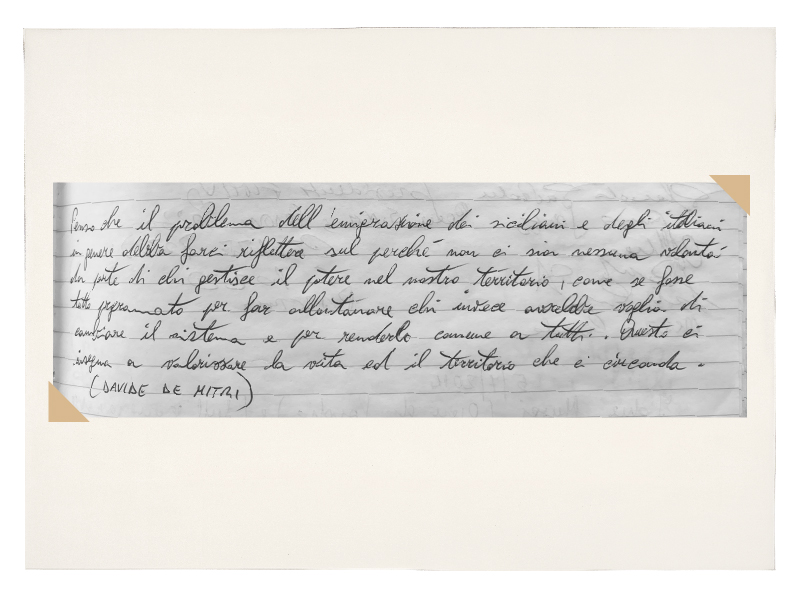 Penso che il problema dell'emigrazione dei siciliani e degli italiani
in genere debba farci riflettere sul perché non ci sia nessuna volontà
da parte di chi gestisce il potere nel nostro territorio, come se fosse
tutto programmato per far allontanare chi invece avrebbe voglia di
cambiare il sistema e per renderlo comune a tutti.. Questo ci
insegna a valorizzare la vita ed il territorio che ci circonda.
(DAVIDE DE MITRI)